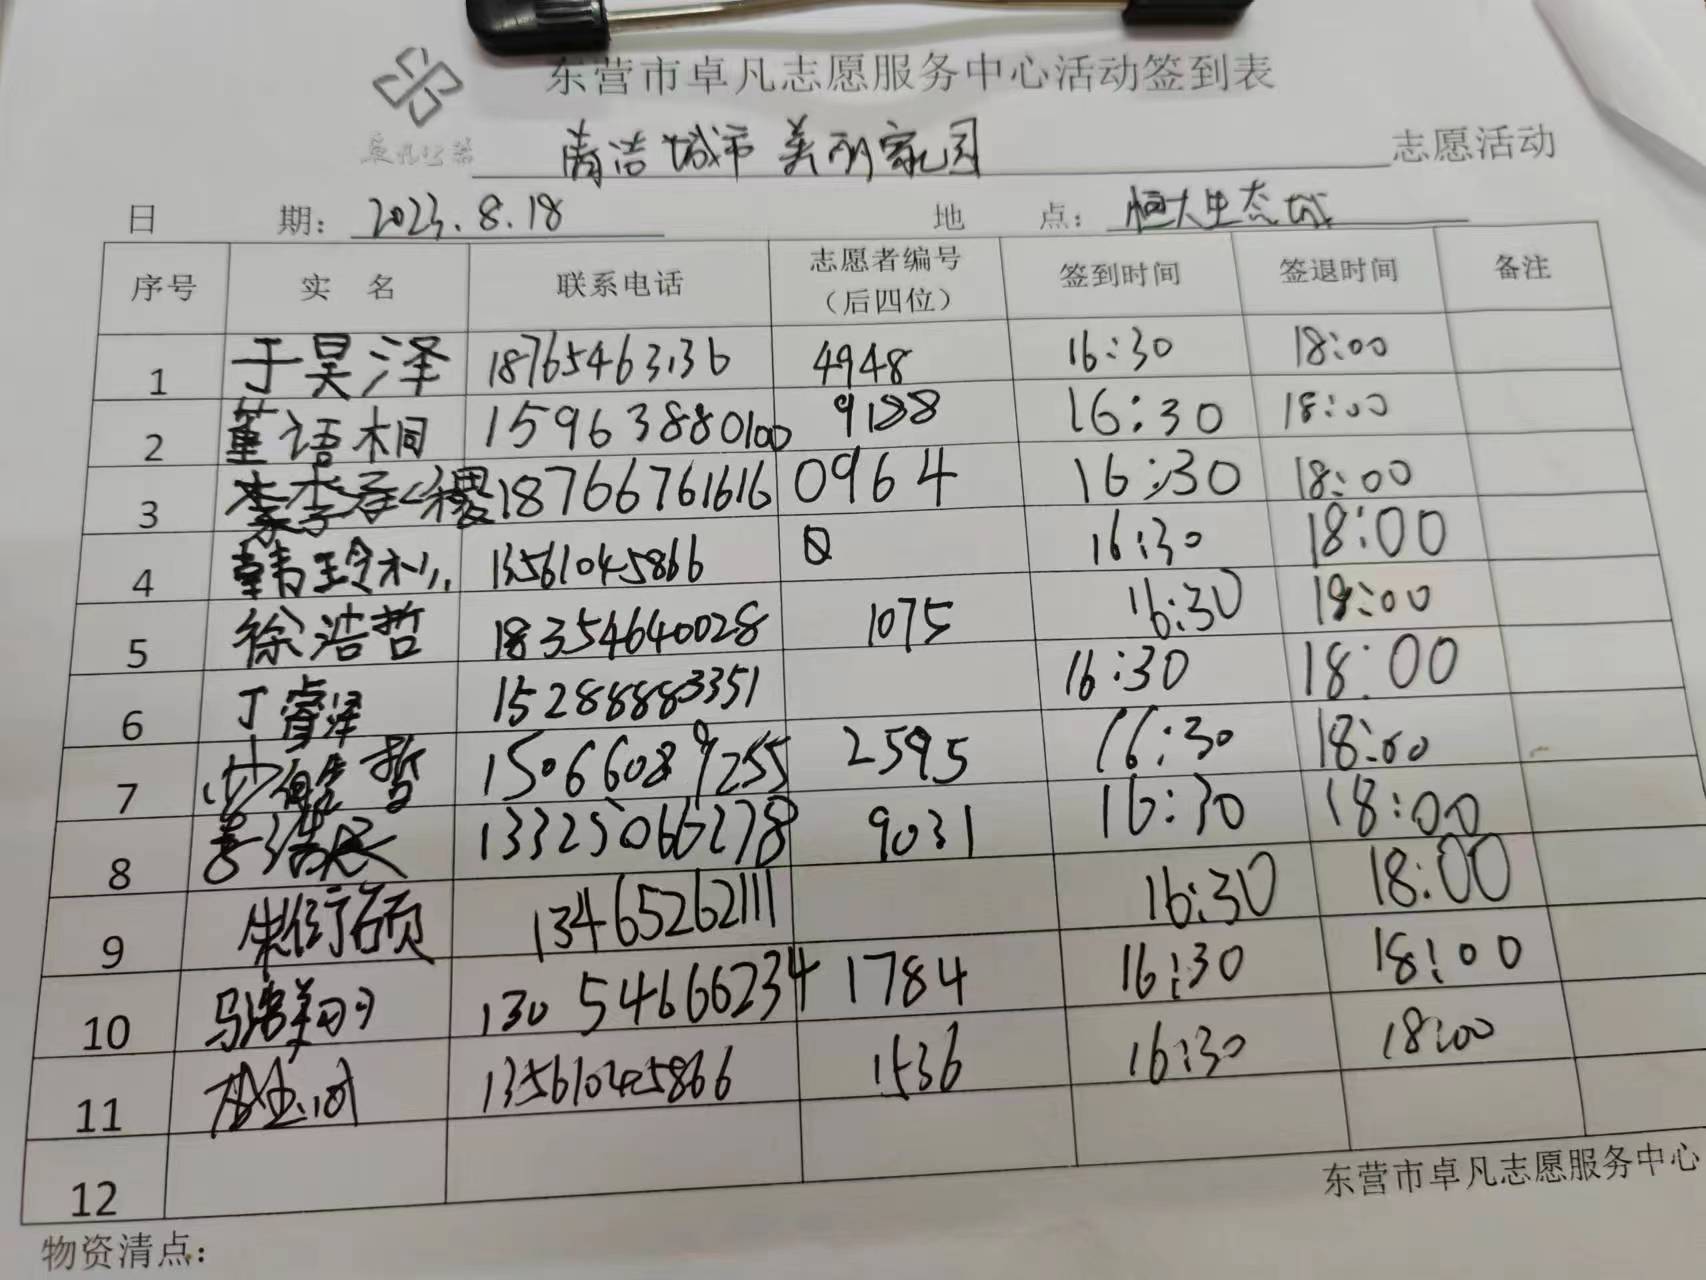 东营市卓凡志愿服务中心活动签到表
卓凡公益
清洁城市 美丽家园 志愿活动
日 期: 2023.8.18 地 点: 恒大生态城
序号 实 名 联系电话 志愿者编号（后四位） 签到时间 签退时间 备注
1 于昊泽 18765463136 4948 16:30 18:00
2 董语桐 15963880100 9188 16:30 18:00
3 18766761616 0964 16:30 18:00
4 13561045866 16:30 18:00
5 徐浩哲 18354640028 1075 16:30 18:00
6 丁睿泽 15288883351 16:30 18:00
7 15066089255 2595 16:30 18:00
8 13325066278 9031 16:30 18:00
9 朱衍硕 13465262111 16:30 18:00
10 马浩翔 13054666234 1784 16:30 18:00
11 13561045866 1536 16:30 18:00
12
东营市卓凡志愿服务中心
物资清点: